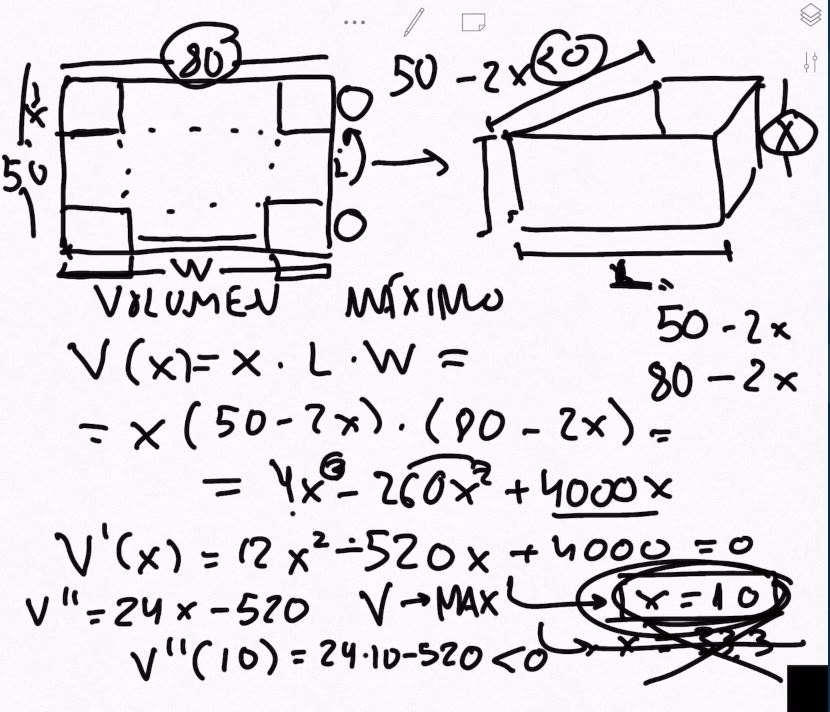 80
50 - 2x
x
50
x
W
L
VOLUMEN MÁXIMO
50 - 2x
V(x) = x · L · W =
80 - 2x
= x (50 - 2x) · (80 - 2x) =
= 4x³ - 260x² + 4000x
V'(x) = 12x² - 520x + 4000 = 0
V'' = 24x - 520 V → MAX x = 10
V''(10) = 24·10-520 < 0